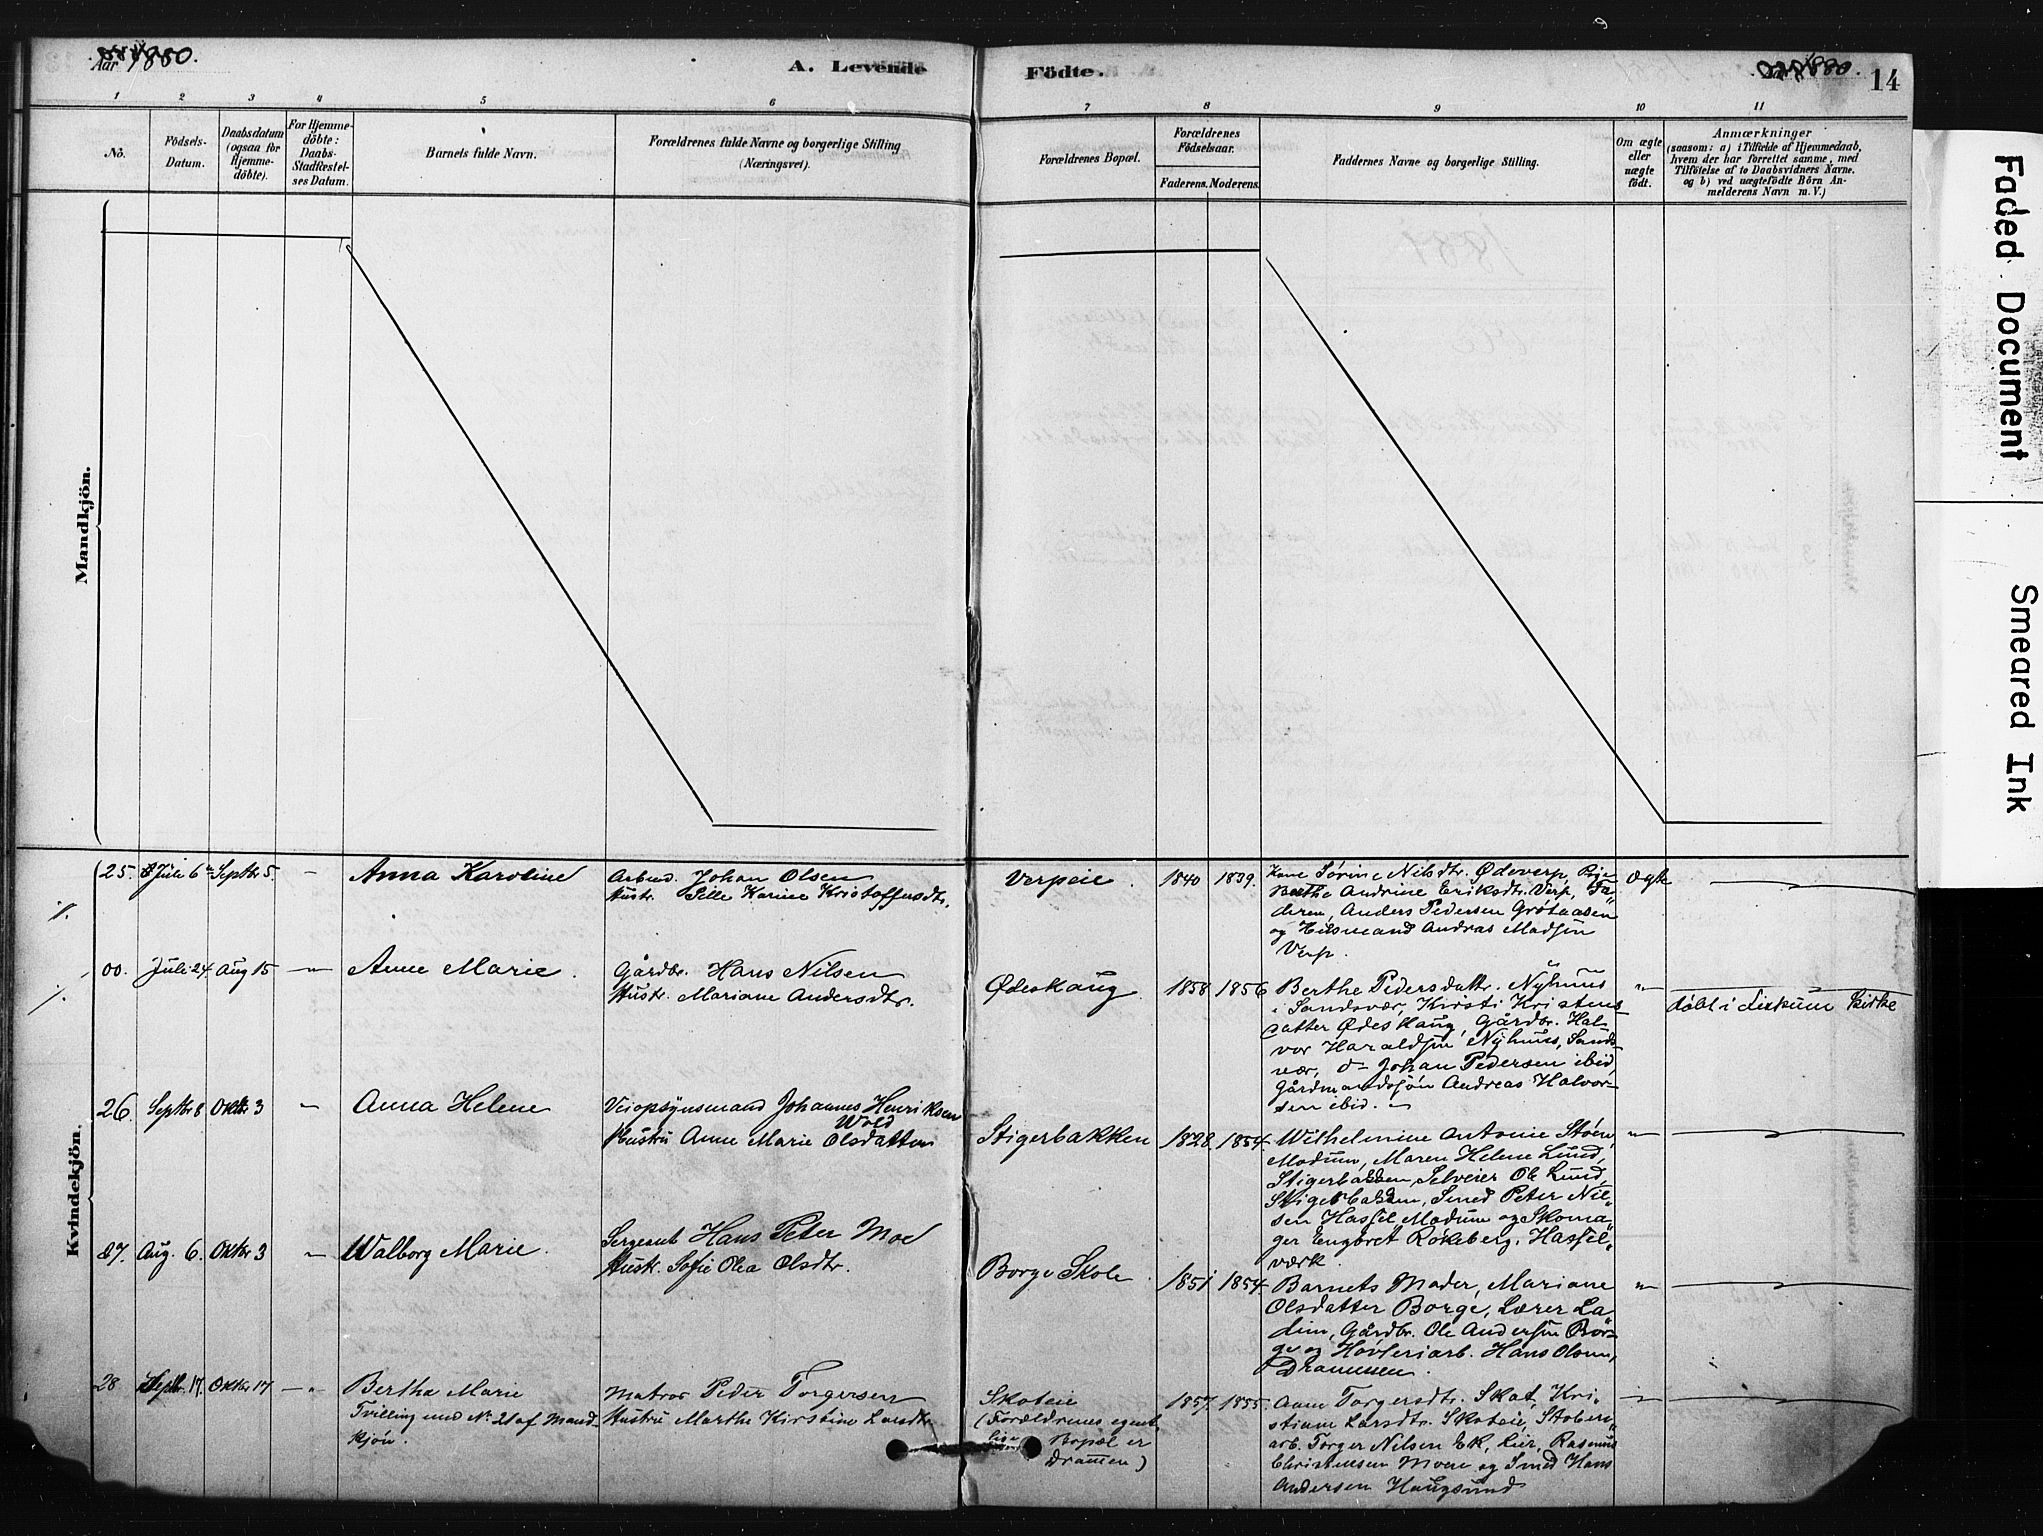 Aar 1880.
A. Levende
Födte.
1880.
14
1 2 3 4 5 6 7 8 9 10 11
No.
Födsels-
Datum.
Daabsdatum
(ogsaa for
Hjemme-
döbte).
For Hjemme-
döbte:
Daabs-
Stadfæstel-
ses Datum.
Barnets fulde Navn.
Forældrenes fulde Navne og borgerlige Stilling
(Næringsvei).
Forældrenes Bopæl.
Forældrenes
Födselsaar.
Faderens. Moderens.
Faddernes Navne og borgerlige Stilling.
Om ægte
eller
uægte
födt.
Anmærkninger
(saasom: a) i Tilfælde af Hjemmedaab,
hvem der har forrettet samme, med
Tilföielse af to Daabsvidners Navne.
og b) ved uægtefödte Börn An-
melderens Navn m. V.)
Mandkjön.
Kvindekjön.
25. Juli 6 Septbr 5. Anna Karoline
Arbmd. Johan Olsen
Hustr. Pille Karine Kristoffersdtr.
Verpeie 1840 1839.
Kone Sørine Nilsdtr. Ødeverp, Pige
Berthe Andrine Eriksdtr. Verp, Fa-
deren, Anders Pedersen Grøtaasen
og Husmand Andras Madsen
Verp.
Ægte
00. Juli 24. Aug 15 Anne Marie.
Gårdbr. Hans Nilsen
Hustr. Mariane Andersdtr.
Ødeskaug 1858 1856
Berthe Pedersdattr. Nyhuus
i Sandsvær, Kirsti Kristens-
datter Ødeskaug, Gårdbr. Hal-
vor Haraldsen Nyhuus, Sands-
vær, Johan Pedersen ibid,
Gårdmandssøn Andreas Halvor-
sen ibid.
døbt i Kirke
26. Septbr 8 Oktbr 3 Anna Helene
Veiopsynsmand Johannes Henriksen
Wold
Hustru Anne Marie Olsdatter
Stigerbakken 1828. 1854.
Wilhelmine Antonie Støen,
Modum, Maren Helene Lund,
Stigerbakken, Selveier Ole Lund,
Stigerbakken, Smed Peter Nil-
sen Hassel Modum og Skoma-
ger Engbret Røkeberg, Hassel-
værk.
27. Aug. 6. Oktbr 3 Walborg Marie.
Sergeant Hans Peter Moe
Hustr. Sofie Olea Olsdtr.
Borge Skole 1851 1854
Barnets Moder, Mariane
Olsdatter Borge, Lærer La-
dim, Gårdbr. Ole Andersen Bor-
ge og Høvleriarb. Hans Olsen,
Drammen.
28 Septbr. 17. Oktbr 17 Bertha Marie
Tvilling med No. 21 af Mand-
kjøn.
Matros Peder Torgersen
Hustru Marthe Kirstine Larsdtr.
Skoteie
(Forældrenes egent-
lige Bopæl er
Drammen)
1857. 1855.
Aan Torgersdtr. Skot, Kri-
stiane Larsdtr. Skoteie, Stoberi-
arb. Torger Nilsen Ek, Lier, Rasmus
Christensen Moen og Smed Hans
Andersen Haugsund
Faded Document
Smeared Ink